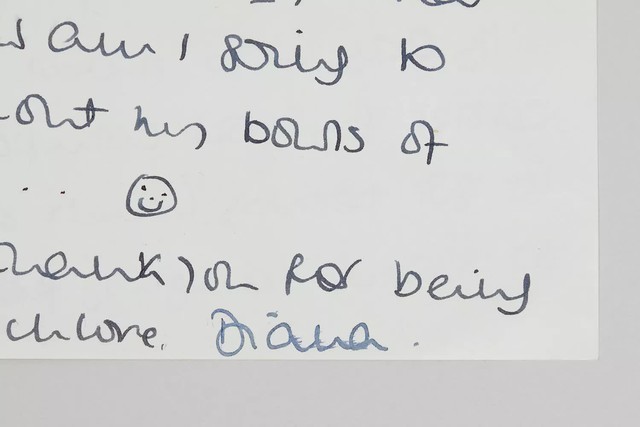 am I going to
out his bowls of
. . ☺
thank you for being
Diana.